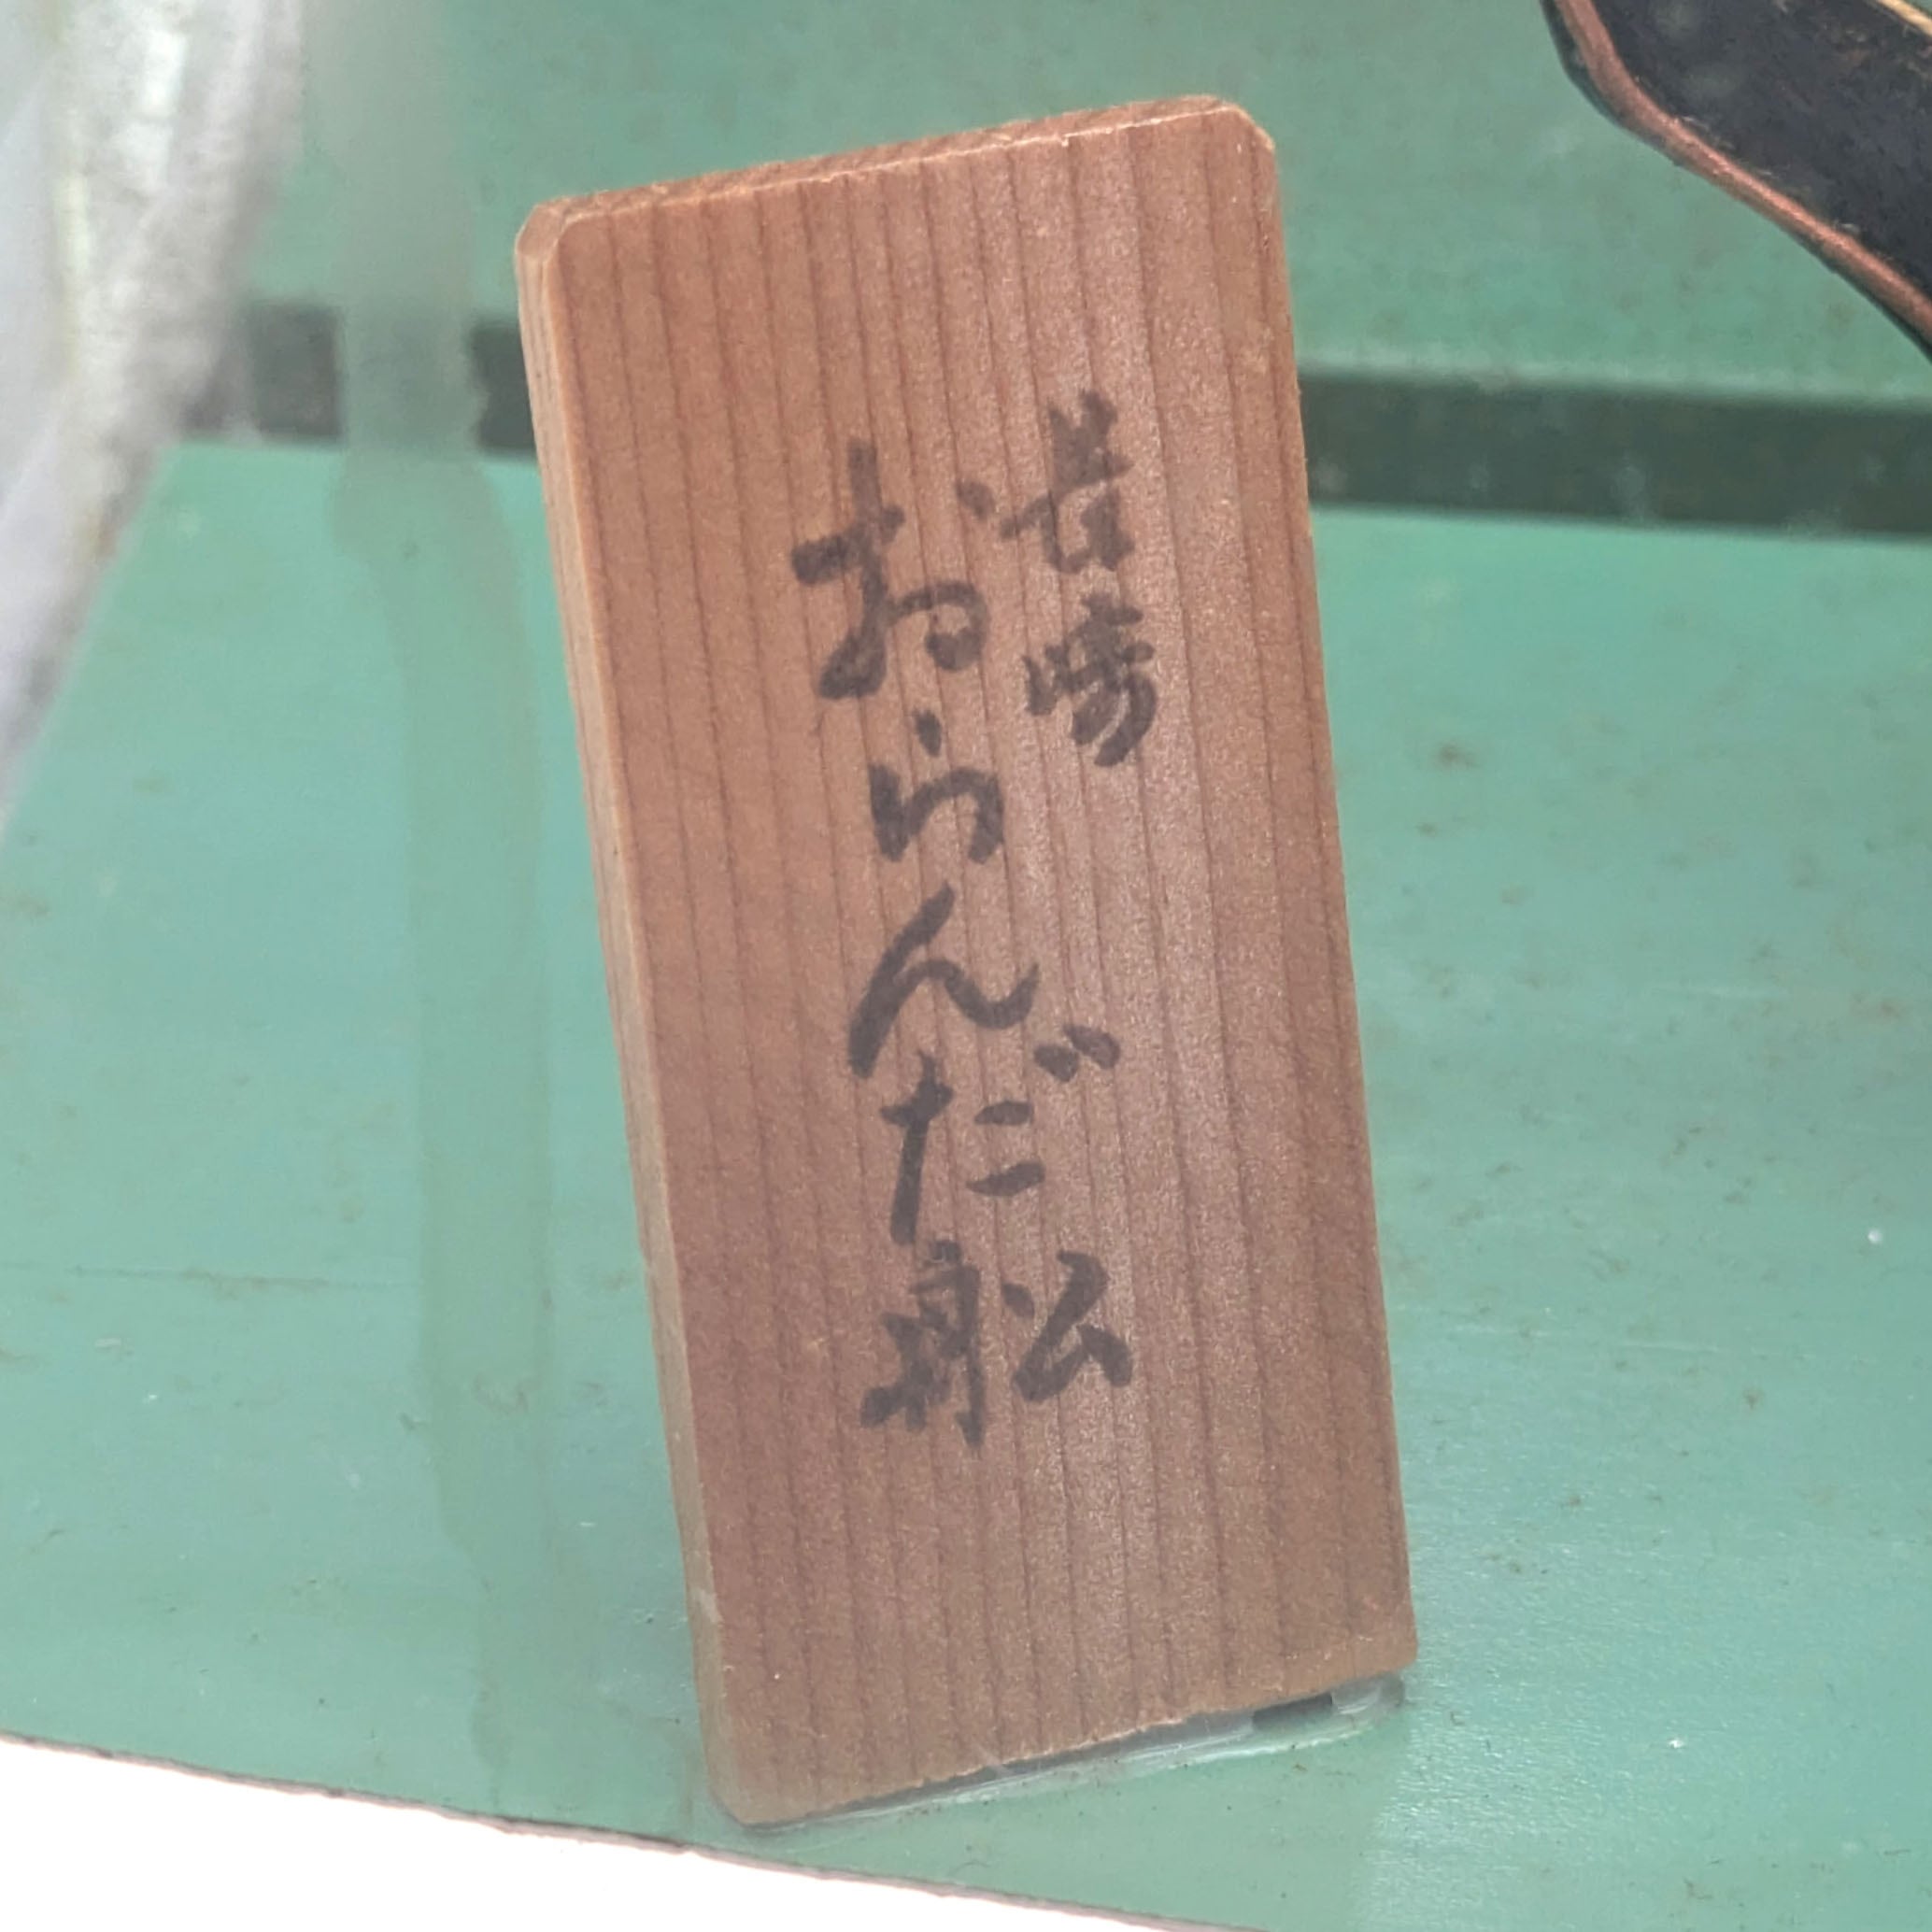 長崎
おらんだ船